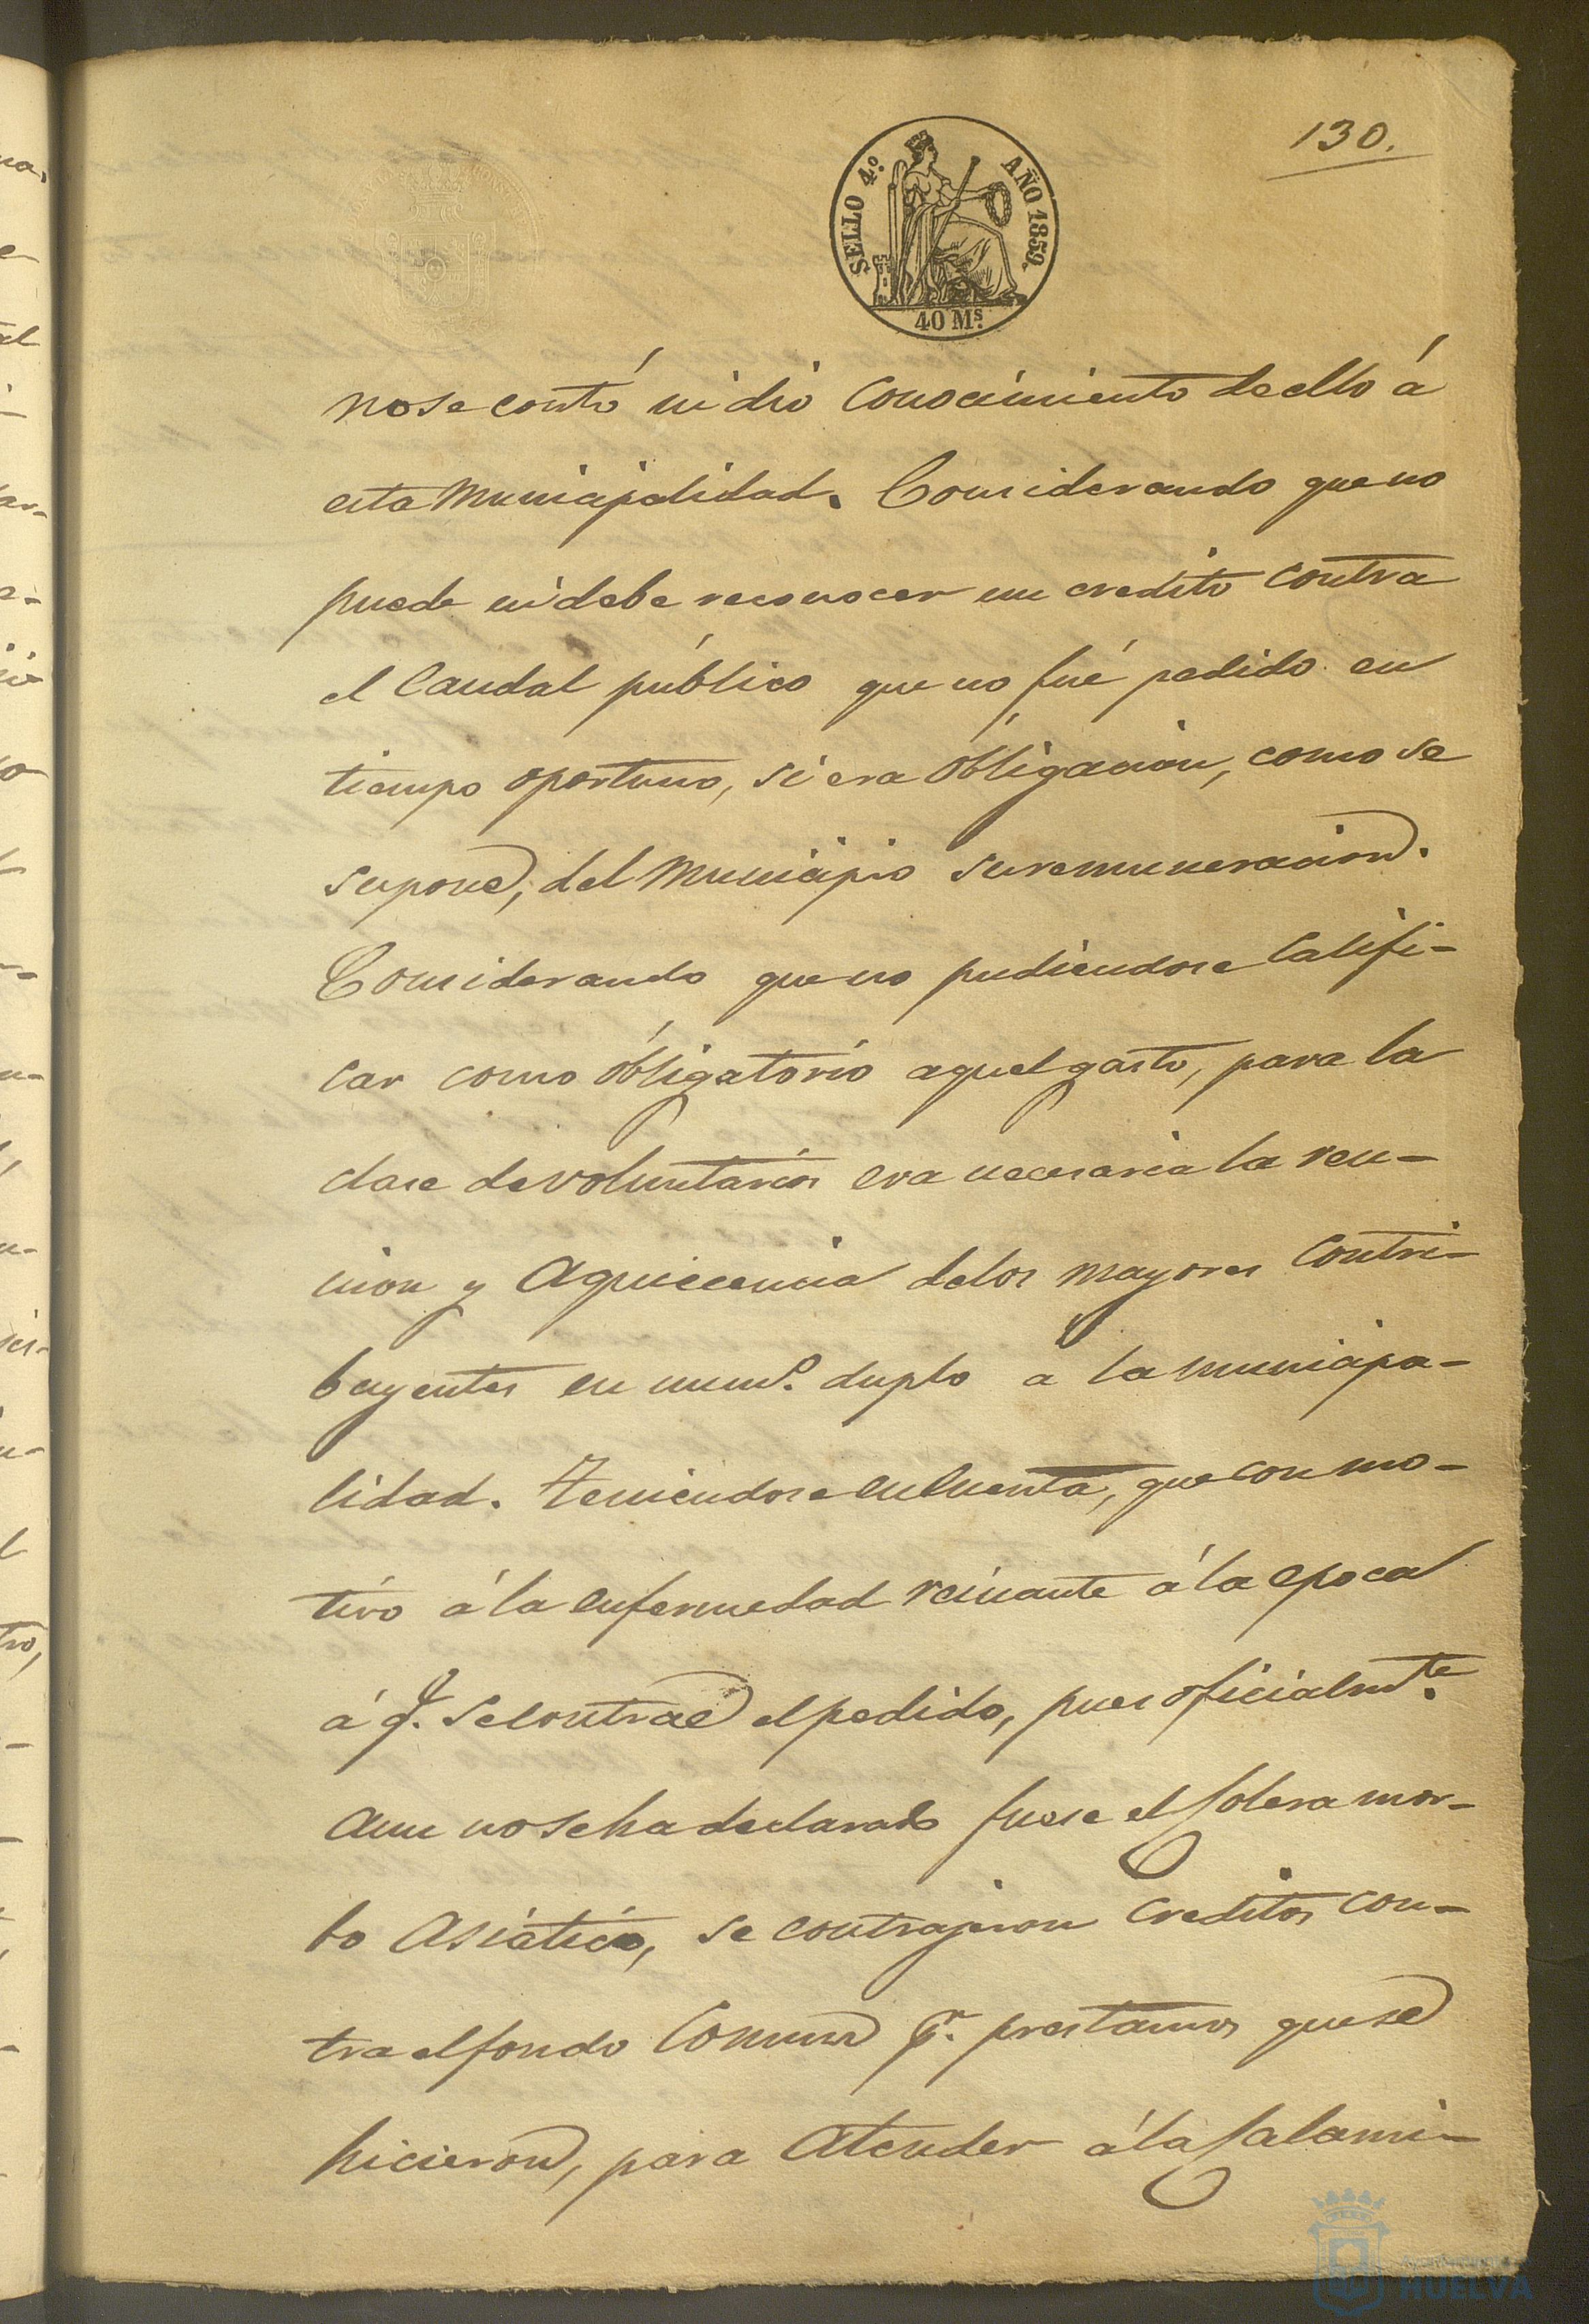 130.
SELLO 4.º AÑO 1859.
40 Ms.
no se contó ni dió conocimiento de ello á
esta Municipalidad. Considerando que no
puede ni debe reconocer un credito contra
el Caudal público que no fué pedido en
tiempo oportuno, si era obligación, como se
supone, del Municipio su remuneracion.
Considerando que no pudiendose Califi-
car como óbligatorio aquel gasto, para la
clase de voluntarios era necesaria la reu-
nion y aquiecencia de los mayores Contri-
buyentes en numº. duplo a la municipa-
lidad. Teniendose en Cuenta, que con mo-
tivo á la enfermedad reinante á la epoca
á q.e se Contrae el pedido, pues oficialmte.
aun no se ha declarado fuese el Colera mor-
bo Asiático, se contrajeron Creditos con-
tra el fondo Comun pr. prestamos que se
hicieron, para atender á la Calami-
HUELVA